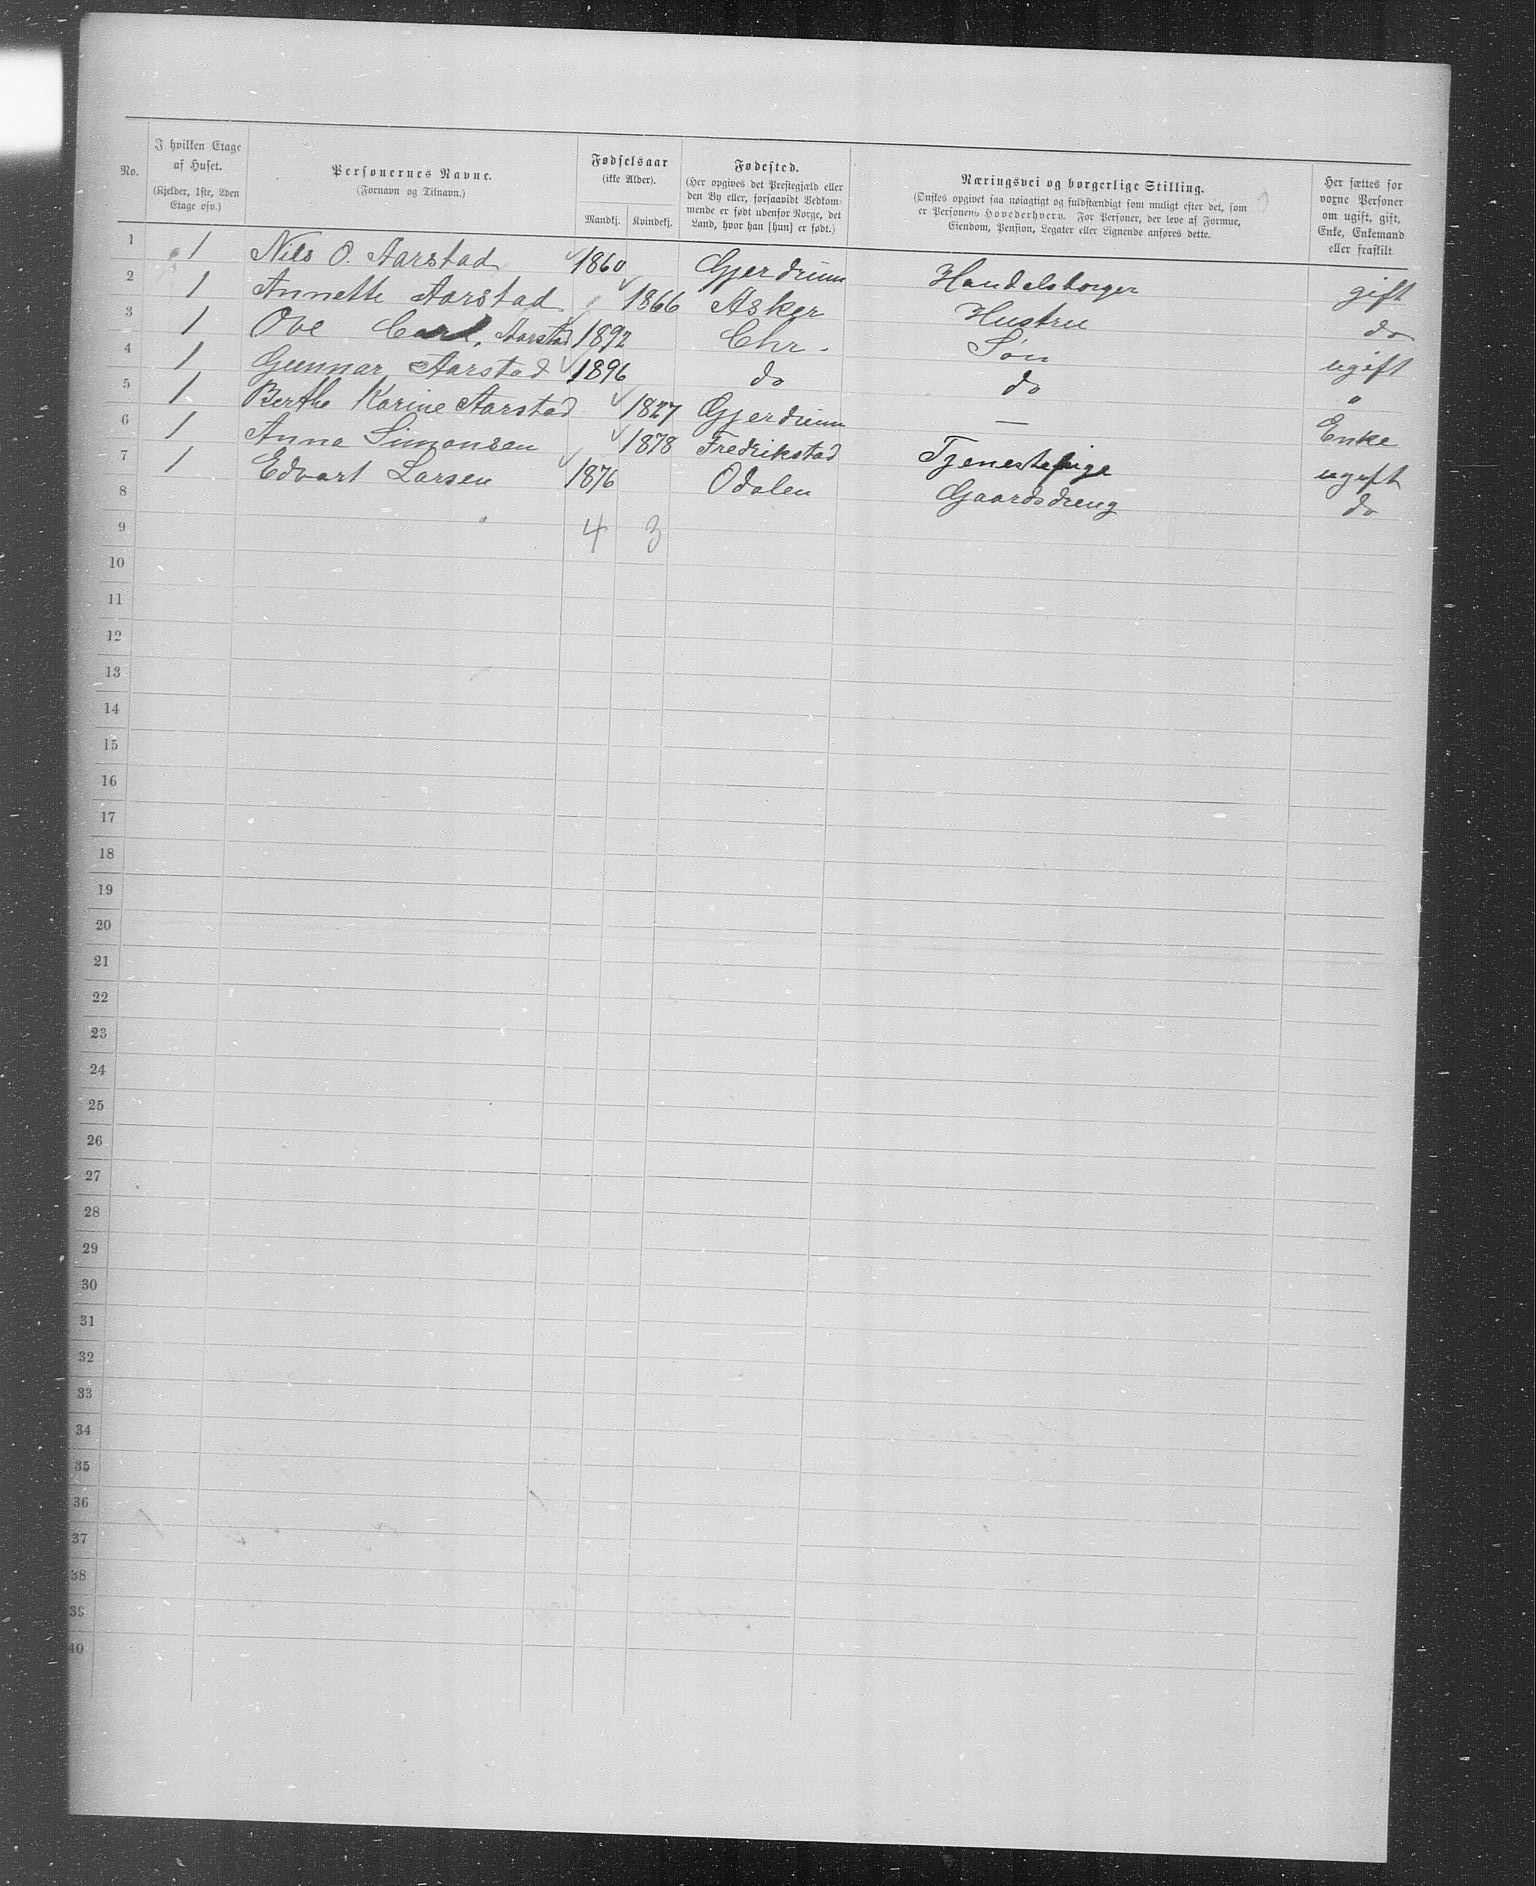 No.
I hvilken Etage af Huset.
(Kjelder, 1ste, 2den Etage osv.)
Personernes Navne.
(Fornavn og Tilnavn.)
Fødselsaar
(ikke Alder).
Mandkj. Kvindekj.
Fødested.
(Her opgives det Prestegjæld eller
den By eller, forsaavidt Vedkom-
mende er født udenfor Norge, det
Land, hvor han [hun] er født.)
Næringsvei og borgerlige Stilling.
(Ønskes opgivet saa nøiagtigt og fuldstændigt som muligt efter det, som
er Personens Hovederhverv. For Personer, der leve af Formue,
Eiendom, Pension, Legater eller Lignende anføres dette.
Her sættes for
voxne Personer
om ugift, gift,
Enke, Enkemand
eller fraskilt.
1 1 Nils O. Aarstad 1860 Gjerdrum Handelsborger gift
2 1 Annette Aarstad 1866 Asker Hustru do
3 1 Ove Carl. Aarstad 1892 Chr. Søn ugift
4 1 Gunnar Aarstad 1896 do do "
5 1 Berthe Karine Aarstad 1827 Gjerdrum — Enke
6 1 Anna Simonsen 1878 Fredrikstad Tjenestepige ugift
7 1 Edvart Larsen 1876 Odalen Gaardsdreng do
8
9 4 3
10
11
12
13
14
15
16
17
18
19
20
21
22
23
24
25
26
27
28
29
30
31
32
33
34
35
36
37
38
39
40